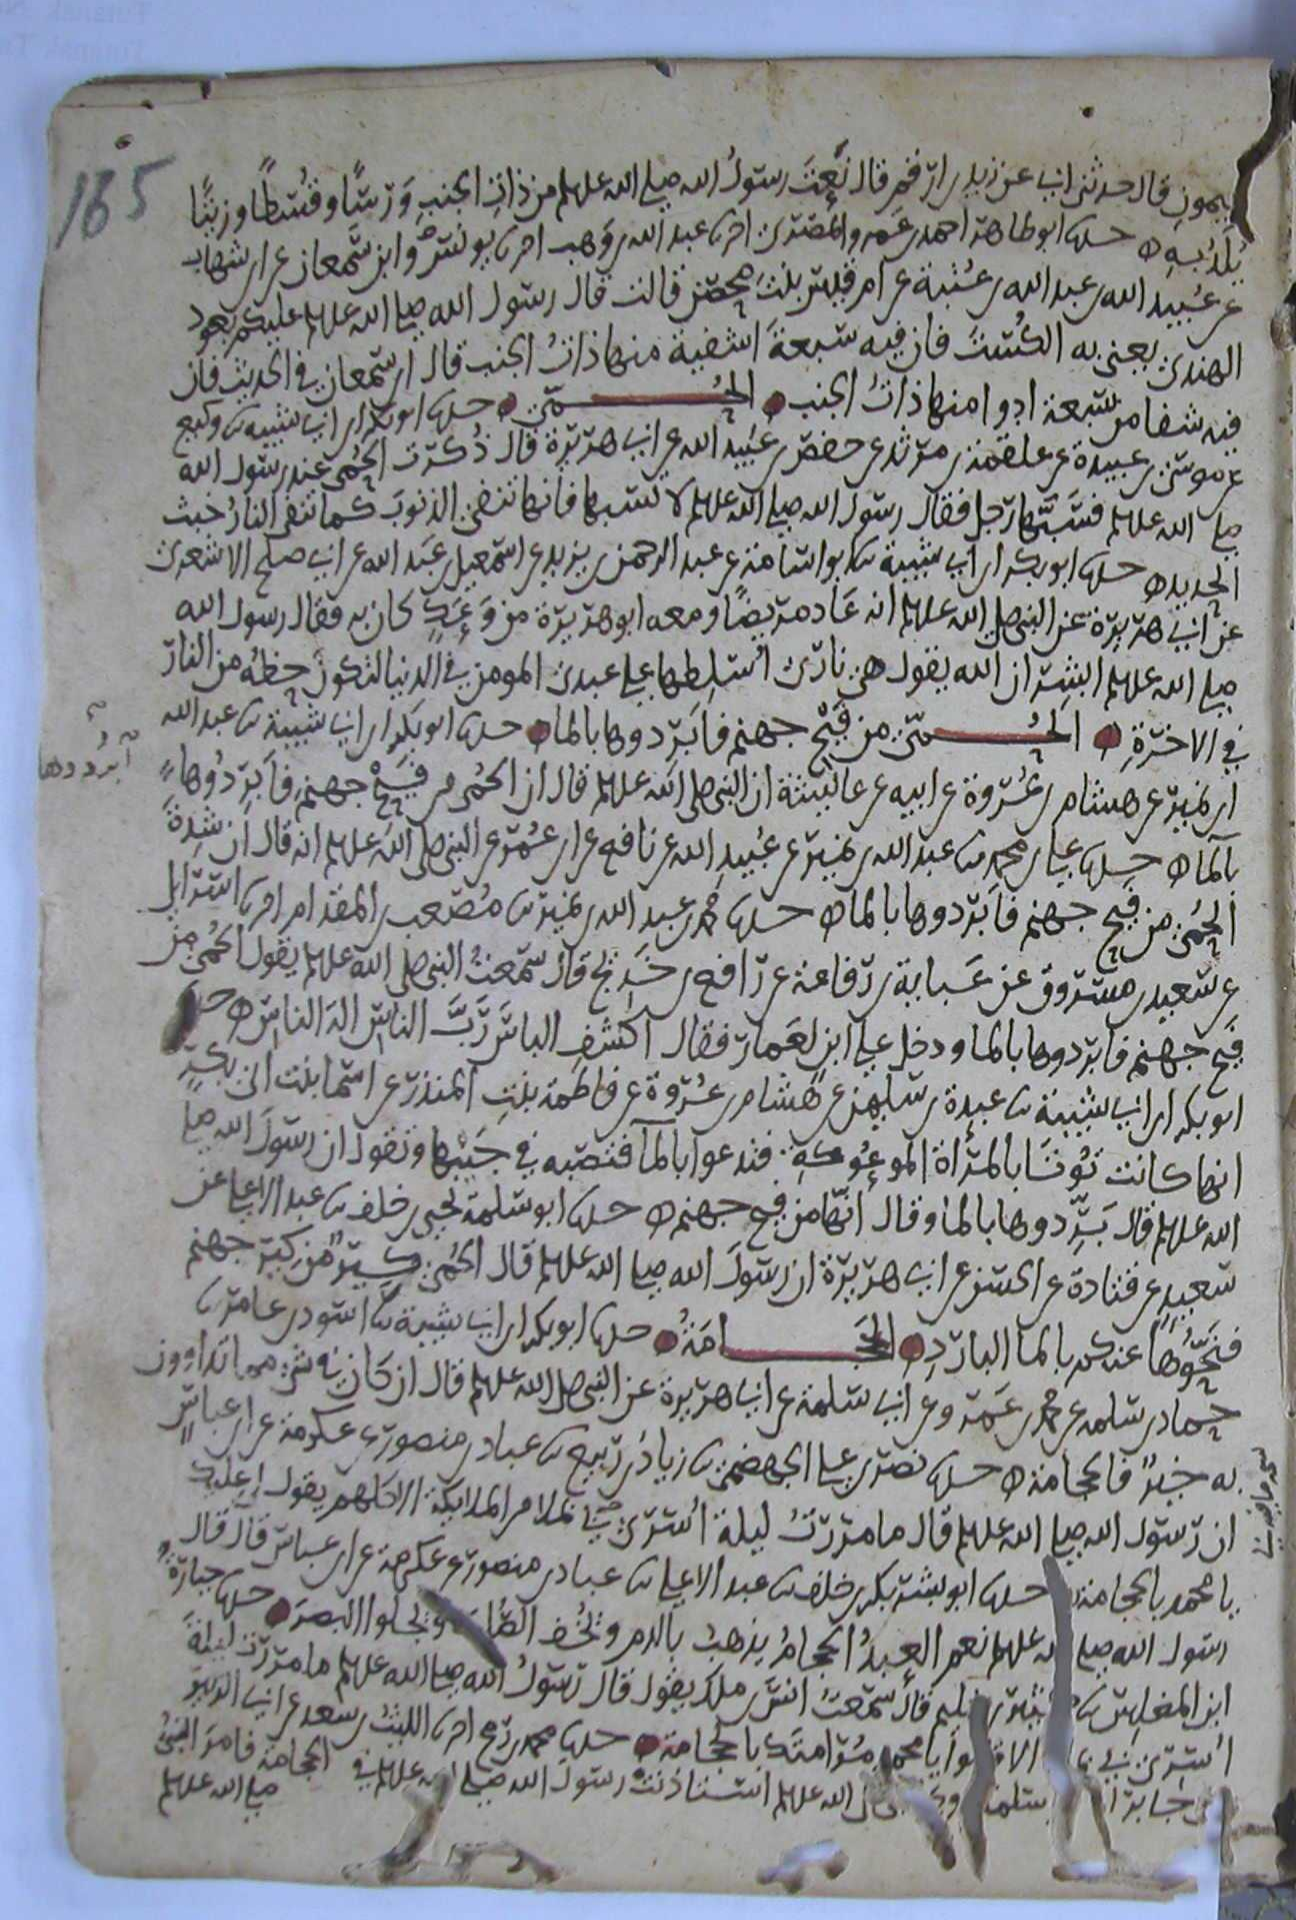 165
ميمون قال حدثني ابي عن زيد بن ارقم قال نعت رسول الله صلى الله عليه وسلم من ذات الجنب ورسًا وقُسطًا وزيتًا
يُلدّ به حدثنا ابو طاهر احمد بن عمرو المصري اخبرنا عبد الله بن وهب اخبرنا يونس وابن سمعان عن ابن شهاب
عن عُبيد الله بن عبد الله بن عُتبة عن ام قيس بنت محصن قالت قال رسول الله صلى الله عليه وسلم عليكم بالعود
الهندي يعني به الكُست فان فيه سبعة اشفية منها ذات الجنب قال ابن سمعان في الحديث فان
فيه شفا من سبعة ادوا منها ذات الجنب الحُمّى حدثنا ابو بكر بن ابي شيبة ثنا وكيع
عن موسى بن عبيدة عن علقمة بن مرثد عن حفص بن عُبيد الله عن ابي هريرة قال ذُكرت الحُمى عند رسول الله
صلى الله عليه وسلم فسبّها رجل فقال رسول الله صلى الله عليه وسلم لا تسبها فانها تنفي الذنوب كما تنفي النار خبث
الحديد حدثنا ابو بكر بن ابي شيبة ثنا ابو اسامة عن عبد الرحمن بن يزيد عن اسمعيل بن عبيد الله عن ابي صلح الاشعري
عن ابي هريرة عن النبي صلى الله عليه وسلم انه عاد مريضًا ومعه ابو هريرة من وَعَكٍ كان به فقال رسول الله
صلى الله عليه وسلم ابشر ان الله يقول هي ناري اُسلطها على عبدي المومن في الدنيا لتكون حظه من النار
في الاخرة الحُمّى من فَيْح جهنم فابردوها بالما حدثنا ابو بكر بن ابي شيبة ثنا عبد الله
ابرُدوها
ابن نمير عن هشام بن عُروة عن ابيه عن عائشة ان النبي صلى الله عليه وسلم قال ان الحُمى من فيح جهنم فابردُوها
بالما حدثنا علي بن محمد ثنا عبد الله بن نمير عن عُبيد الله عن نافع عن ابن عُمر عن النبي صلى الله عليه وسلم انه قال ان شدة
الحُمى من فيح جهنم فابردوها بالما حدثنا محمد بن عبد الله بن نمير ثنا مُصعب بن المقدام اخبرنا اسرائيل
عن سعيد بن مسروق عن عَباية بن رفاعة عن رافع بن خديج قال سمعتُ النبي صلى الله عليه وسلم يقول الحُمى من
فيح جهنم فابردوها بالما ودخل على ابن لعمار فقال اكشف الباس ربَّ الناس اله الناس حدثنا
ابو بكر بن ابي شيبة ثنا عبدة بن سليمن عن هشام بن عُروة عن فاطمة بنت المنذر عن اسما بنت ابي بكرٍ
انها كانت تُوتى بالمرأة الموعُوكة فتدعوا بالما فتصبه في جَيبها وتقول ان رسول الله صلى
الله عليه وسلم قال بَرِّدوها بالما وقال انها من فيح جهنم حدثنا ابو سلمة يحيى بن خلف ثنا عبد الاعلى عن
سعيد عن قتادة عن الحسن عن ابي هريرة ان رسول الله صلى الله عليه وسلم قال الحُمى كير من كير جهنم
فنَحُّوها عنكم بالما البارد الحَجَامَة حدثنا ابو بكر بن ابي شيبة ثنا اسود بن عامر ثنا
حماد بن سلمه عن محمد بن عمرو عن ابي سلمة عن ابي هريرة عن النبي صلى الله عليه وسلم قال ان كان في شي مما تداوون
به خيرٌ فالحجامة حدثنا نصر بن علي الجهضمي ثنا زياد بن ربيع ثنا عباد بن منصور عن عكرمة عن ابن عباس
ان رسول الله صلى الله عليه وسلم قال ما مررتُ ليلة اُسري بي بملا من الملايكة الا كلهم يقول لي عليك
يا محمد بالحجامة حدثنا ابو بشر بكر بن خلف ثنا عبد الاعلى ثنا عباد بن منصور عن عكرمة عن ابن عباس قال قال
رسول الله صلى الله عليه وسلم نعم العبدُ الحجامُ يذهبُ بالدم ويُخف الصُلب ويجلوا البصر حدثنا جبارة
ابن المغلس ثنا كثير بن سليم قال سمعتُ انس بن ملك يقول قال رسول الله صلى الله عليه وسلم ما مررت ليلة
اُسري بي بملا الا قالوا يا محمد مُر امتك بالحجامة حدثنا محمد بن رمح اخبرنا الليث بن سعد عن ابي الزبير
عن جابر ان ام سلمة زوج النبي صلى الله عليه وسلم استاذنت رسول الله صلى الله عليه وسلم في الحجامة فامر النبي
صلى الله عليه وسلم